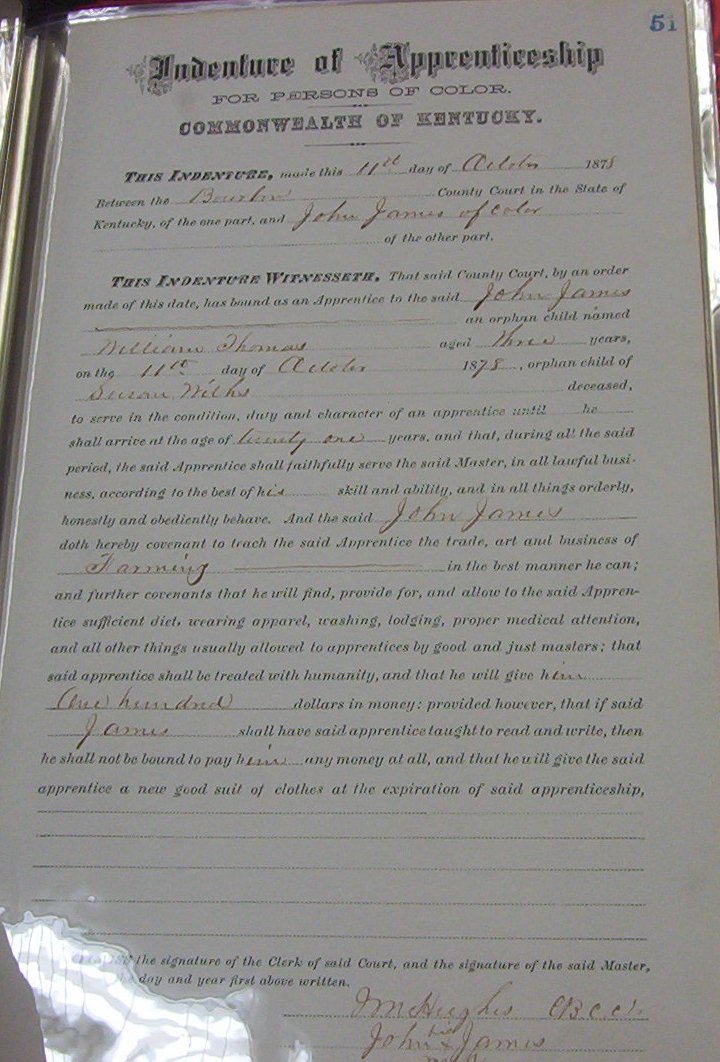 51
Indenture of Apprenticeship
FOR PERSONS OF COLOR.
COMMONWEALTH OF KENTUCKY.
THIS INDENTURE, made this 11th day of October 1878
Between the Bourbon County Court in the State of
Kentucky, of the one part, and John James of color
of the other part.
THIS INDENTURE WITNESSETH, That said County Court, by an order
made of this date, has bound as an Apprentice to the said John James
an orphan child named
William Thomas aged three years,
on the 11th day of October 1878, orphan child of
Susan Wilks deceased,
to serve in the condition, duty and character of an apprentice until he
shall arrive at the age of twenty one years, and that, during all the said
period, the said Apprentice shall faithfully serve the said Master, in all lawful busi-
ness, according to the best of his skill and ability, and in all things orderly,
honestly and obediently behave. And the said John James
doth hereby covenant to teach the said Apprentice the trade, art and business of
Farming in the best manner he can;
and further covenants that he will find, provide for, and allow to the said Appren-
tice sufficient diet, wearing apparel, washing, lodging, proper medical attention,
and all other things usually allowed to apprentices by good and just masters; that
said apprentice shall be treated with humanity, and that he will give him
One hundred dollars in money: provided however, that if said
James shall have said apprentice taught to read and write, then
he shall not be bound to pay him any money at all, and that he will give the said
apprentice a new good suit of clothes at the expiration of said apprenticeship,
the signature of the Clerk of said Court, and the signature of the said Master,
the day and year first above written.
JM Hughes C B C Ct
his
John x James